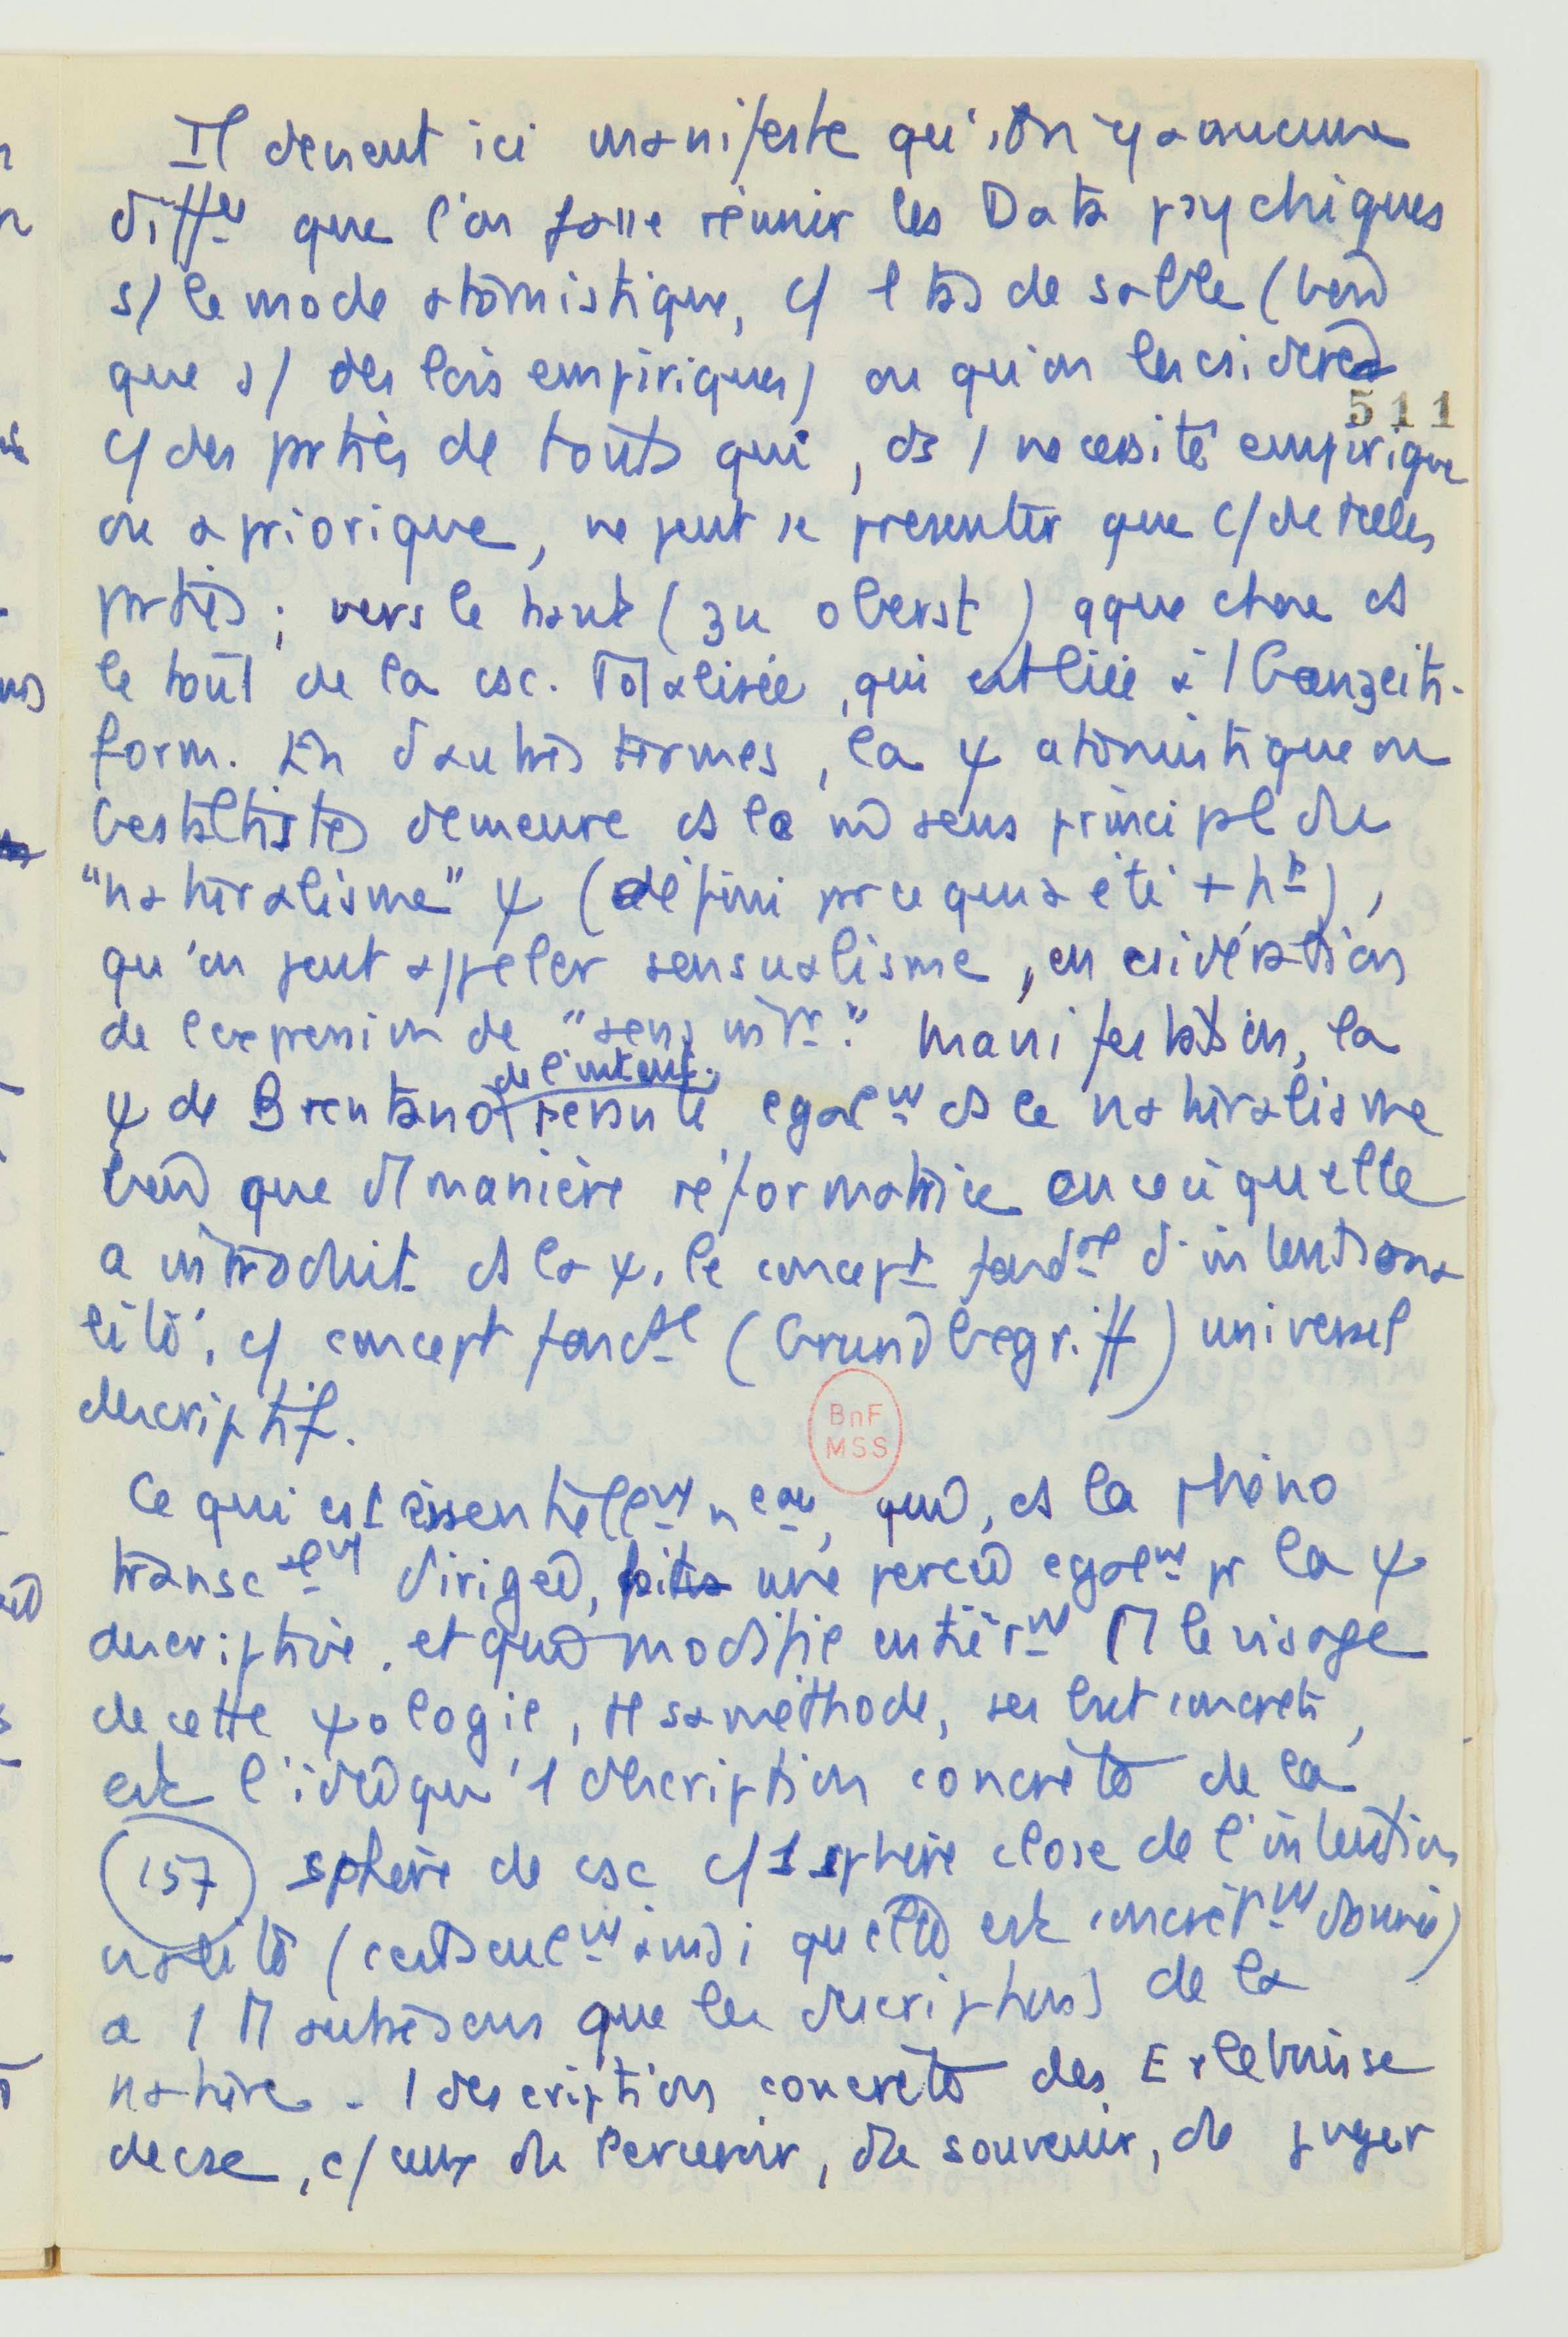 Il devient ici manifeste qu'on y a aucune
diff^ce que l'on fasse réunir les Data psychiques
s/ le mode atomistique, c/ 1 tas de sable (bien
que s/ des lois empiriques) ou qu'on les csidère
511
c/ des prties de touts qui, ds 1 nécessité empirique
ou apriorique, ne peut se présenter que c/ de telles
prties ; vers le haut (zu oberst) qque chose ds
le tout de la csc. Totalisée, qui est liée à 1 Ganzeits-
form. En d'autres termes, la ψ atomistique ou
Gestaltiste demeure ds le sens principl du
"naturalisme" ψ (défini pr ce qui a été + ht),
qu'on peut appeler sensualisme, en csidération
de l'expression de "sens int^r." Manifestation, la
de l'intent.
ψ de Brentano égal^mt ds le naturalisme
bien que d'1 manière réformatrice en ceci qu'elle
a introduit ds la ψ. le concept fond^al d'intentiona
lité, c/ concept fond^al (Grundbegriff) universel
descriptif.
BnF
MSS
Ce qui est essentiell^mt n^eau, qui, ds la phéno
transc^al^mt dirigée, une percée égal^mt pr la ψ
descriptive. et qui modifie entièr^mt le visage
de cette ψologie, tte sa méthode, ses but concrets,
est l'idée qu'1 description concrète de la
(157) sphère de csc c/ 1 sphère close de l'intention
nalité (c'est seul^mt ainsi qu'elle est concrèt^mt donnée)
a 1 autre sens que les descriptions de la
nature. 1 description concrète des Erlebnisse
de csc, c/ ceux du Percevoir, du souvenir, de juger